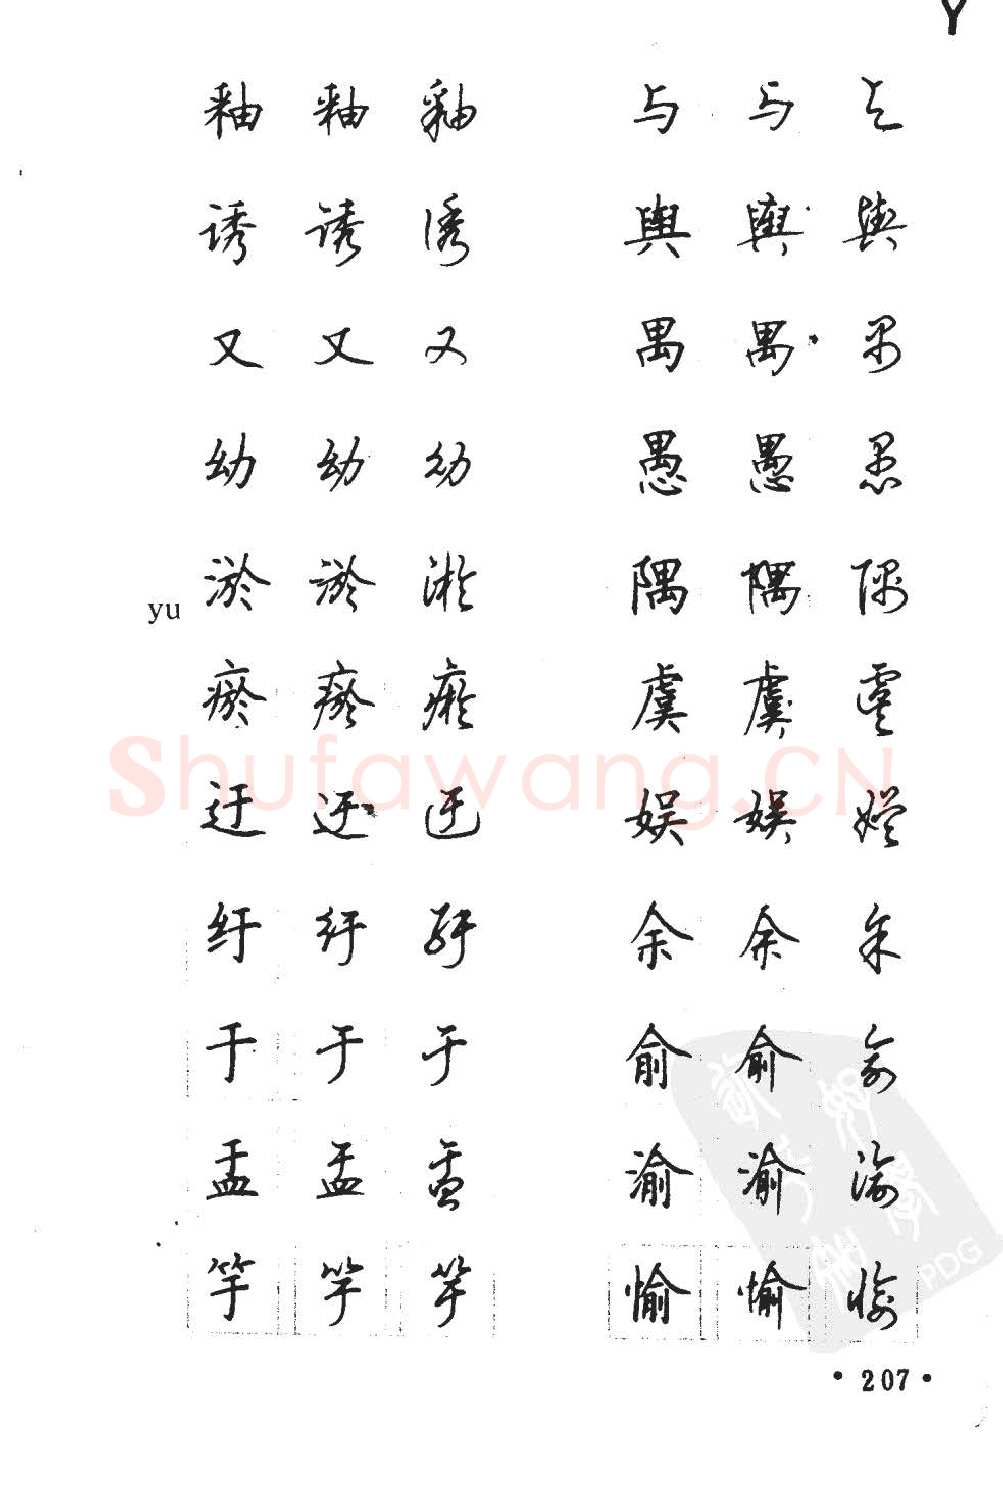 Y
釉 釉 釉 与 与 与
诱 诱 诱 舆 舆 舆
又 又 又 禺 禺 禺
幼 幼 幼 愚 愚 愚
yu 淤 淤 淤 隅 隅 隅
瘀 瘀 瘀 虞 虞 虞
Shufawang.CN
迂 迂 迂 娱 娱 娱
纡 纡 纡 余 余 余
于 于 于 俞 俞 俞
盂 盂 盂 渝 渝 渝
竽 竽 竽 愉 愉 愉
PDG
·207·